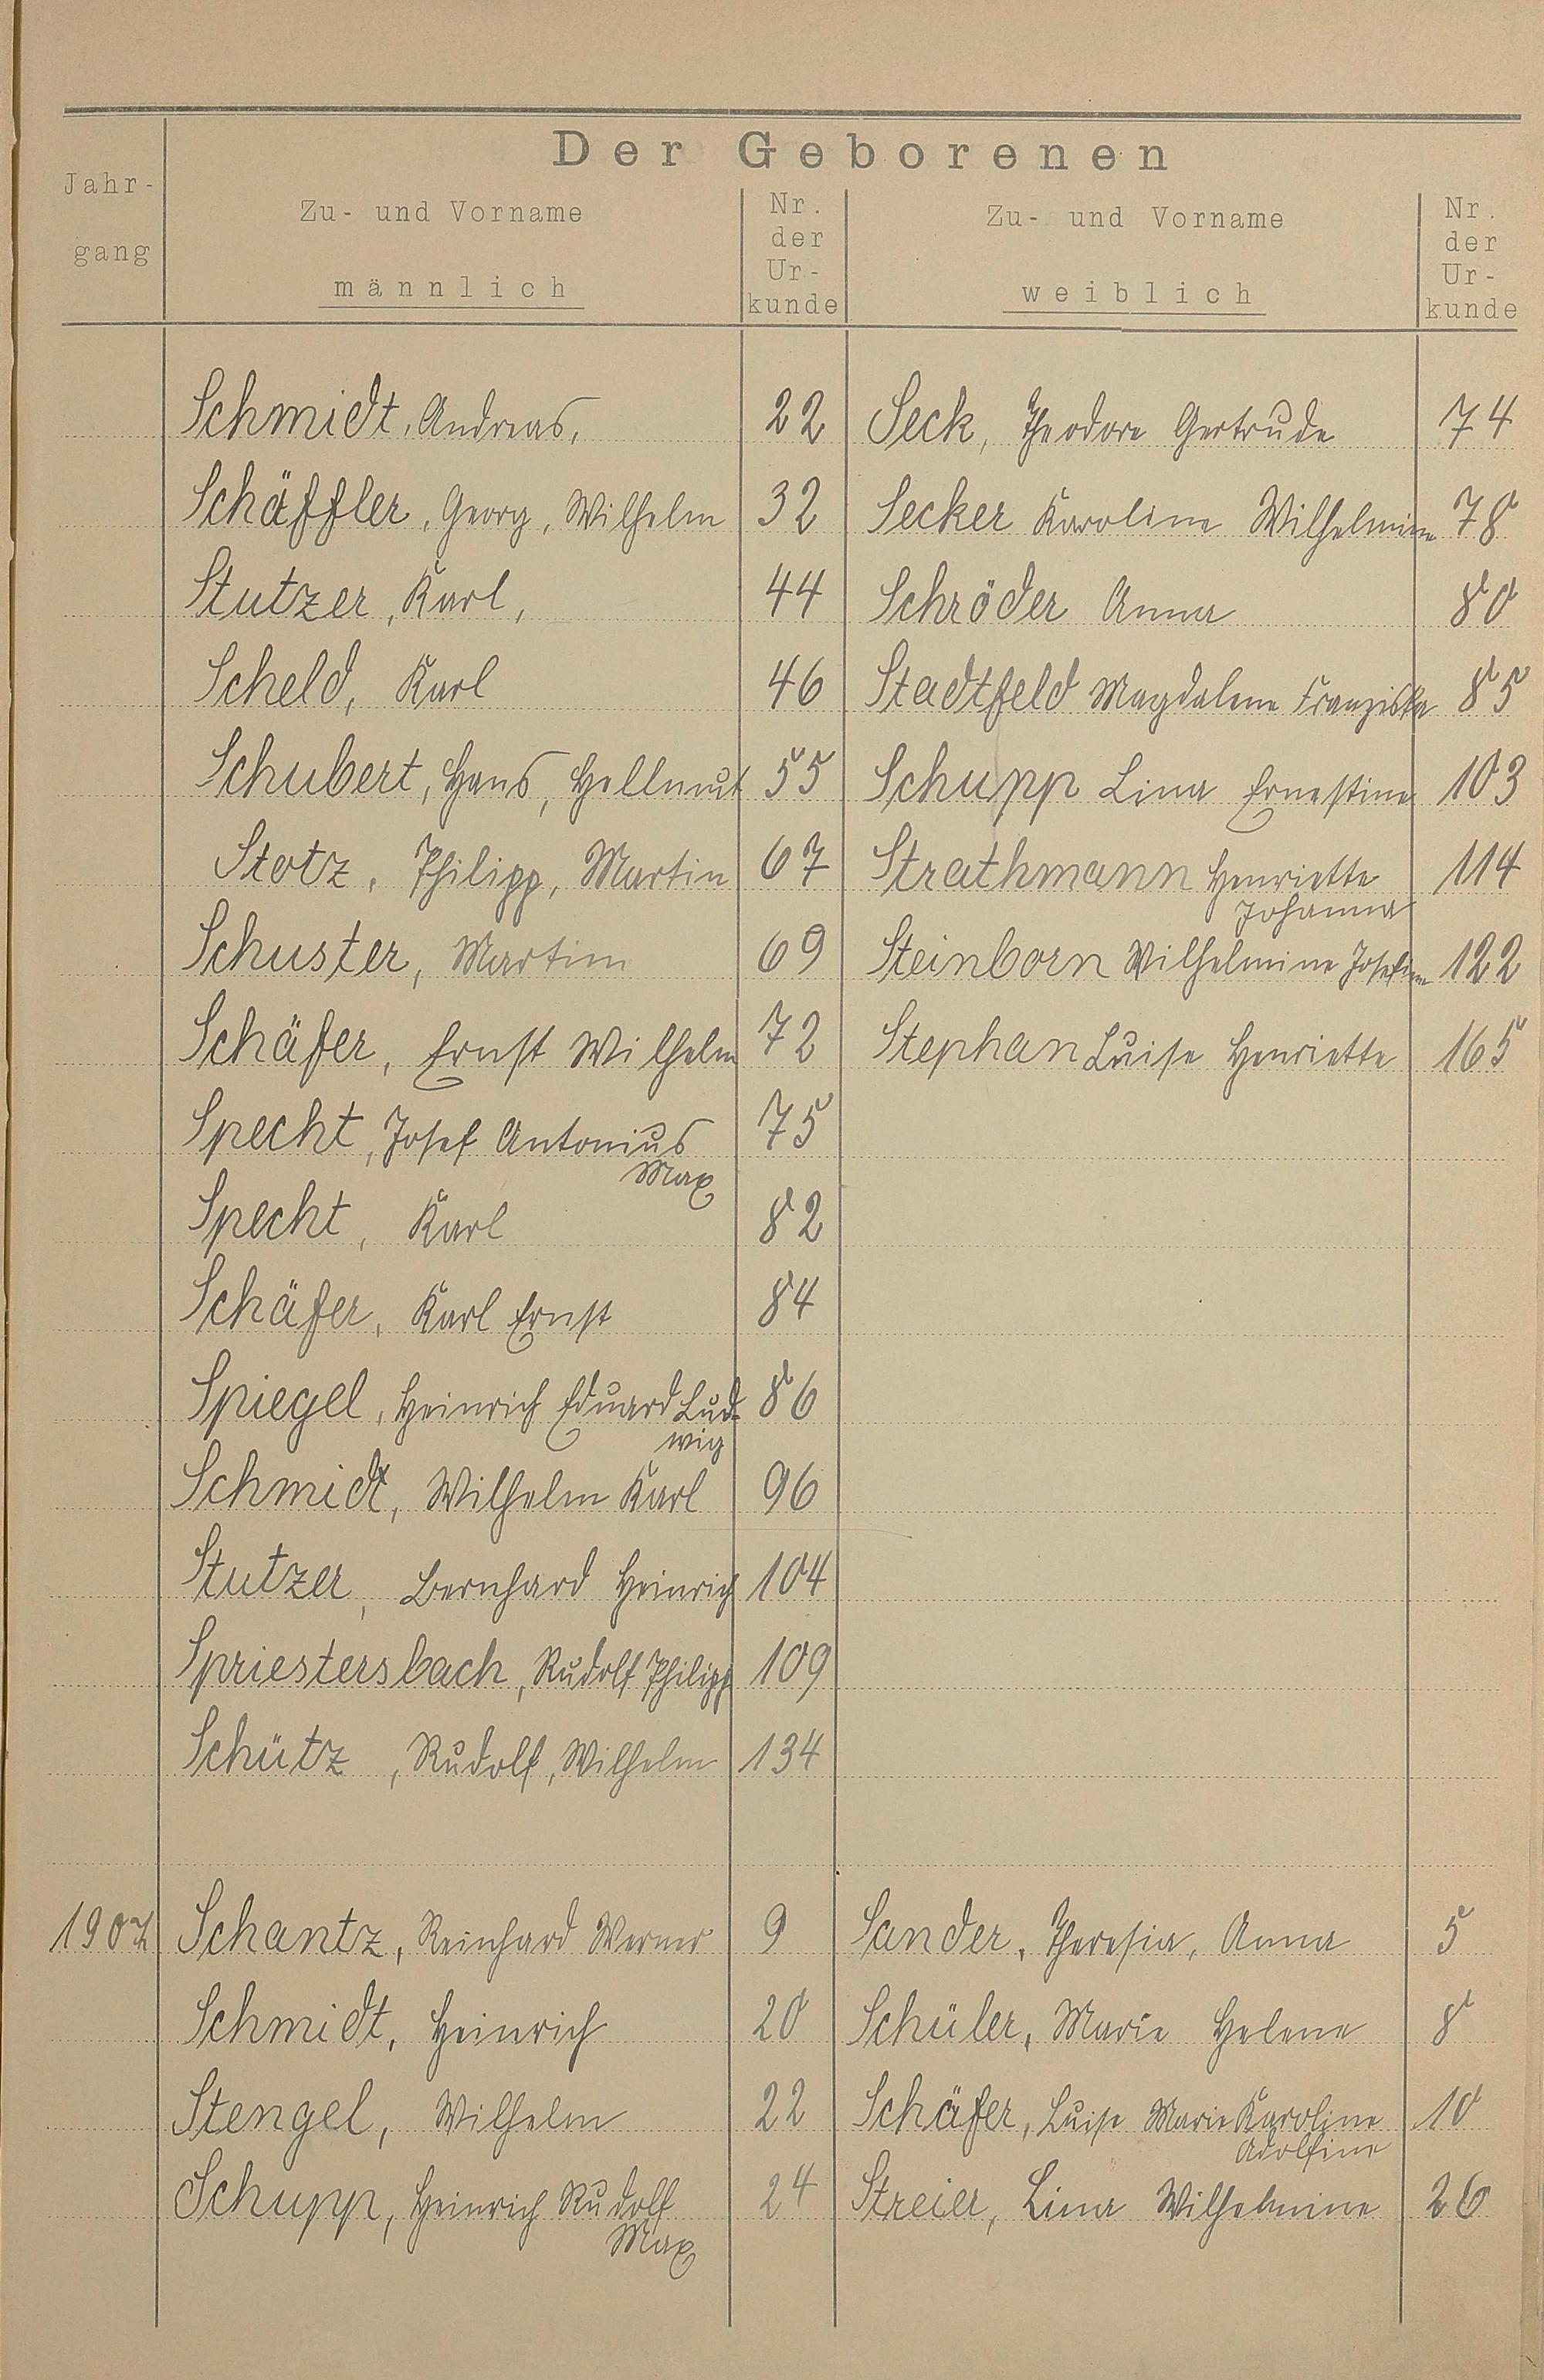 Der Geborenen
Jahr-
gang
Zu- und Vorname
männlich
Nr.
der
Ur-
kunde
Zu- und Vorname
weiblich
Nr.
der
Ur-
kunde
Schmidt, Andreas, 22 Seck, Theodore Gertrude 74
Schäffler, Georg, Wilhelm 32 Secker Karoline Wilhelmine 78
Stutzer, Karl, 44 Schröder Anna 80
Scheld, Karl 46 Stadtfeld Magdalena Franziska 85
Schubert, Hans, Hellmut 55 Schupp Lina Ernestine 103
Stotz, Philipp, Martin 67 Strathmann Henriette 114
Johanna
Schuster, Martin 69 Steinborn Wilhelmine Josefine 122
Schäfer, Ernst Wilhelm 72 Stephan Luise Henriette 165
Specht, Josef Antonius 75
Max
Specht, Karl 82
Schäfer, Karl Ernst 84
Spiegel, Heinrich Eduard Lud- 86
wig
Schmidt, Wilhelm Karl 96
Stutzer, Bernhard Heinrich 104
Spriestersbach, Rudolf Philipp 109
Schütz, Rudolf, Wilhelm 134
1907 Schantz, Reinhard Werner 9 Sander, Theresia, Anna 5
Schmidt, Heinrich 20 Schüler, Marie Helene 8
Stengel, Wilhelm 22 Schäfer, Luise Marie Karoline 10
Adolfine
Schupp, Heinrich Rudolf 24 Streier, Lina Wilhelmine 26
Max